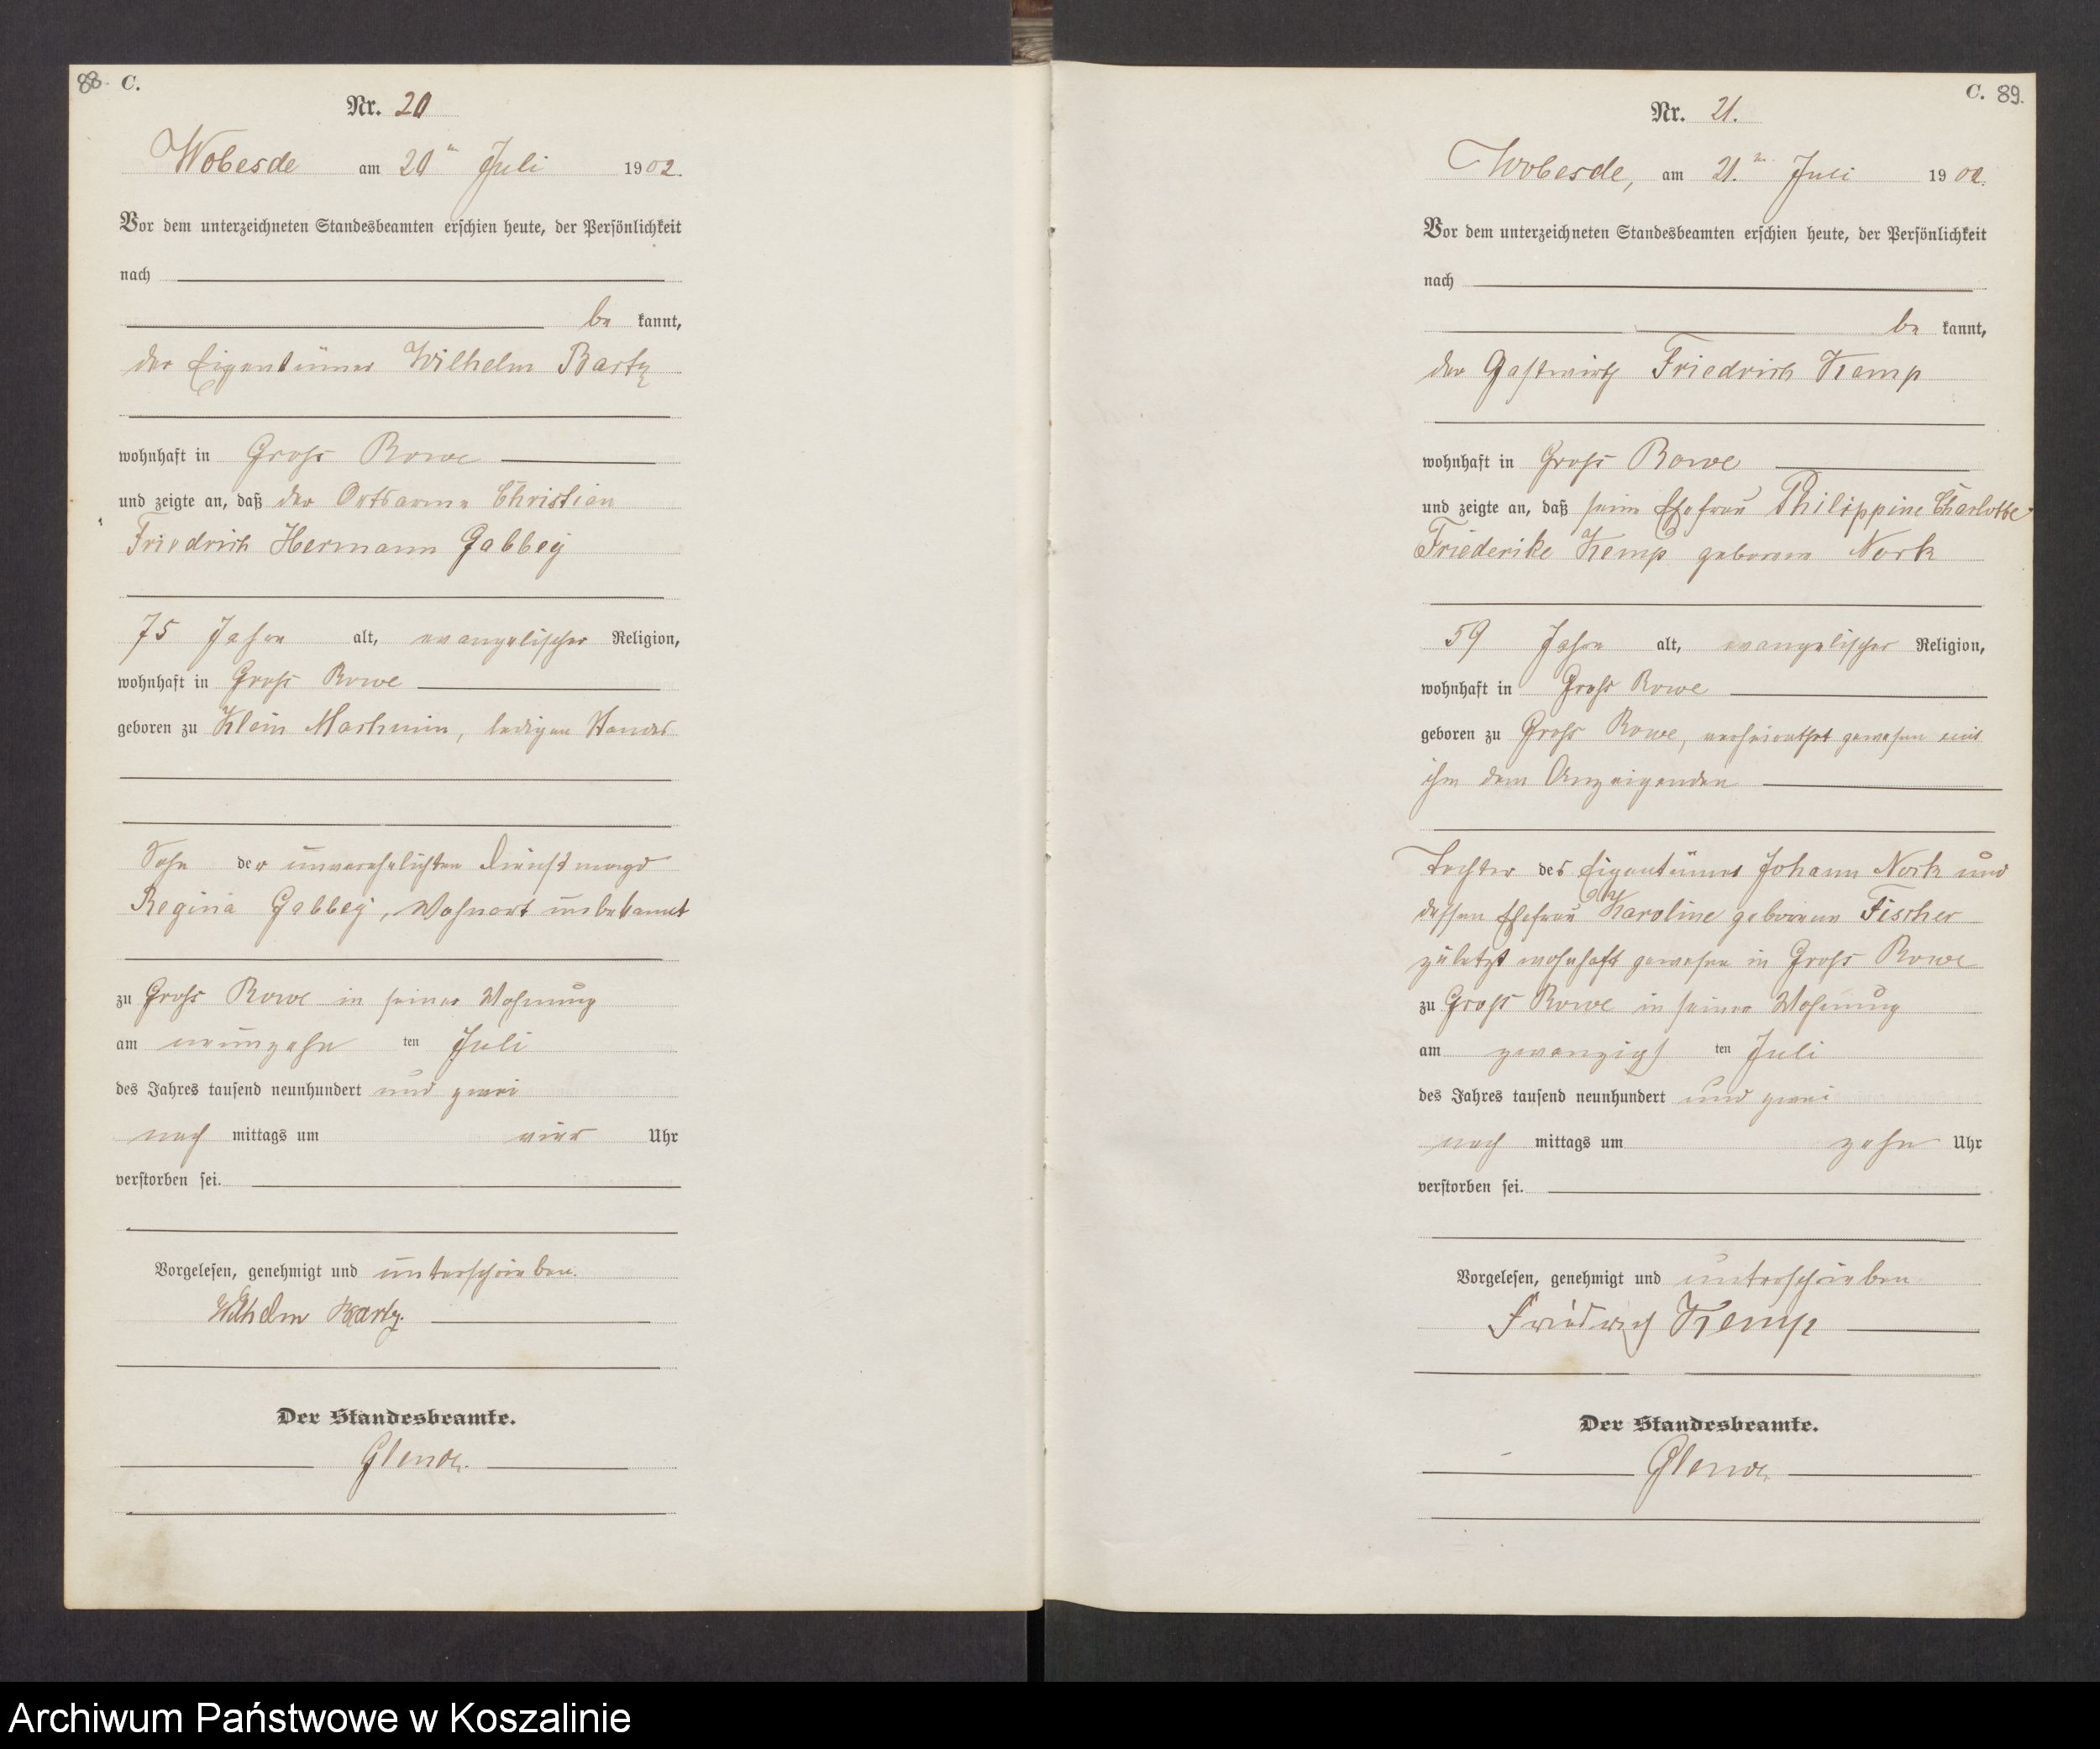 88. C.
Nr. 20
Wobesde am 20ten Juli 1902.
Vor dem unterzeichneten Standesbeamten erschien heute, der Persönlichkeit
nach
be kannt,
der Eigentümer Wilhelm Bartz
wohnhaft in Groß Rowe
und zeigte an, daß der Ortsarme Christian
Friedrich Hermann Gabbey
75 Jahre alt, evangelischer Religion,
wohnhaft in Groß Rowe
geboren zu Klein Machmin, ledigen Standes
Sohn der unverehelichten Dienstmagd
Regina Gabbey, Wohnort unbekannt
zu Groß Rowe in seiner Wohnung
am neunzehn ten Juli
des Jahres tausend neunhundert und zwei
nach mittags um vier Uhr
verstorben sei.
Vorgelesen, genehmigt und unterschrieben.
Wilhelm Bartz.
Der Standesbeamte.
C. 89.
Nr. 21.
Wobesde, am 21.ten Juli 1902.
Vor dem unterzeichneten Standesbeamten erschien heute, der Persönlichkeit
nach
be kannt,
der Gastwirth Friedrich Kemp
wohnhaft in Groß Rowe
und zeigte an, daß seine Ehefrau Philippine Charlotte
Friederike Kemp geborene Nork
59 Jahre alt, evangelischer Religion,
wohnhaft in Groß Rowe
geboren zu Groß Rowe, verheirathet gewesen mit
ihm dem Anzeigenden
Tochter des Eigentümers Johann Nork und
dessen Ehefrau Karoline geborene Fischer
zuletzt wohnhaft gewesen in Groß Rowe
zu Groß Rowe in seiner Wohnung
am zwanzigs ten Juli
des Jahres tausend neunhundert und zwei
nach mittags um zehn Uhr
verstorben sei.
Vorgelesen, genehmigt und unterschrieben
Friedrich Kemp
Der Standesbeamte.
Archiwum Państwowe w Koszalinie